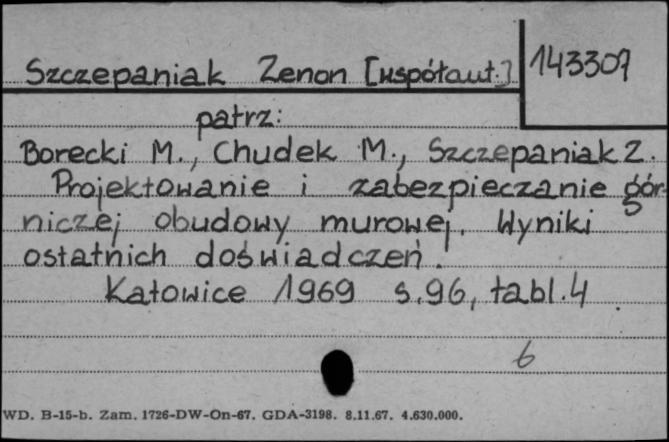 Szczepaniak Zenon [współaut.]
143307
patrz:
Borecki M., Chudek M., Szczepaniak Z.
Projektowanie i zabezpieczanie gór-
niczej obudowy murowej. Wyniki
ostatnich doświadczeń.
Katowice 1969 s.96, tabl.4
6
WD. B-15-b. Zam. 1726-DW-On-67. GDA-3198. 8.11.67. 4.630.000.